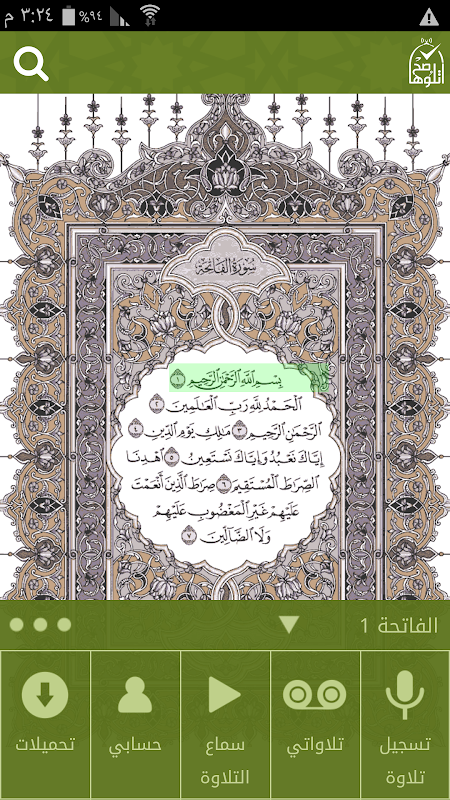 م ٣:٢٤ %٩٤
صحح
اتلوها
سُورَةُ الفَاتِحَةِ
بِسْمِ ٱللَّهِ ٱلرَّحْمَٰنِ ٱلرَّحِيمِ ١
ٱلْحَمْدُ لِلَّهِ رَبِّ ٱلْعَٰلَمِينَ ٢
ٱلرَّحْمَٰنِ ٱلرَّحِيمِ ٣ مَٰلِكِ يَوْمِ ٱلدِّينِ ٤
إِيَّاكَ نَعْبُدُ وَإِيَّاكَ نَسْتَعِينُ ٥ ٱهْدِنَا
ٱلصِّرَٰطَ ٱلْمُسْتَقِيمَ ٦ صِرَٰطَ ٱلَّذِينَ أَنْعَمْتَ
عَلَيْهِمْ غَيْرِ ٱلْمَغْضُوبِ عَلَيْهِمْ
وَلَا ٱلضَّآلِّينَ ٧
الفاتحة 1
تسجيل تلاوة
تلاواتي
سماع التلاوة
حسابي
تحميلات